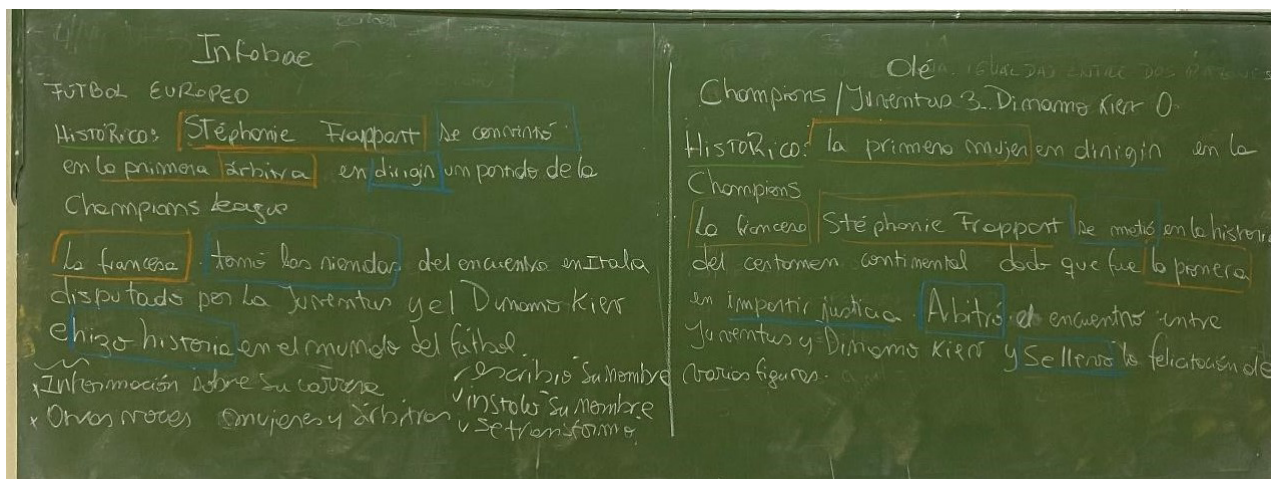 Infobae
FUTBOL EUROPEO
HISTÓRICO: Stéphanie Frappart se convirtió
en la primera árbitra en dirigir un partido de la
Champions League
La francesa tomó las riendas del encuentro en Italia
disputado por la Juventus y el Dinamo Kiev
e hizo historia en el mundo del fútbol.
x Información sobre su carrera
x Otras voces mujeres y árbitras
✓ escribió su nombre
✓ instaló su nombre
✓ se transformó
Olé
IGUALDAD ENTRE DOS
Champions / Juventus 3 - Dinamo Kiev 0.
HISTÓRICO: la primera mujer en dirigir en la
Champions
La francesa Stéphanie Frappart se metió en la historia
del certamen continental dado que fue la primera
en impartir justicia. Arbitró el encuentro entre
Juventus y Dinamo Kiev y se llevó la felicitación de
varias figuras.